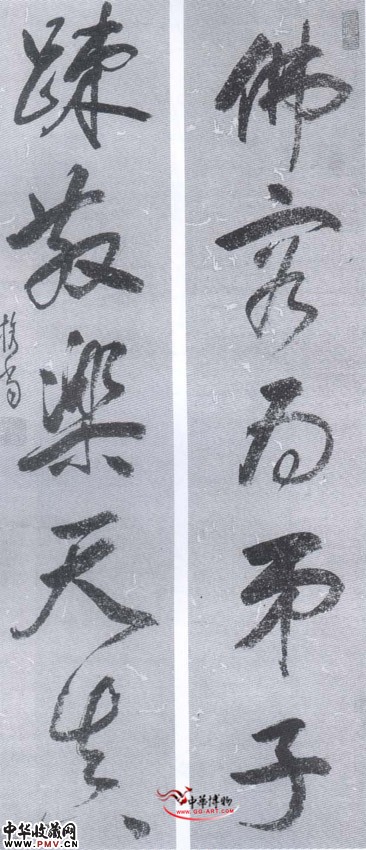 佛容为弟子
踈散樂天真
中華博物
WWW.GG-ART.COM
中华收藏网
WWW.PMV.CN